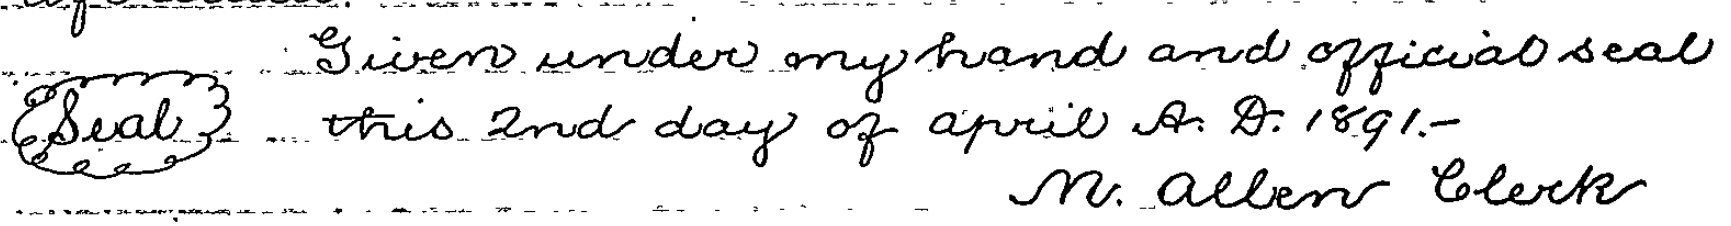 Given under my hand and official seal
Seal this 2nd day of april A. D. 1891.-
M. Allen Clerk